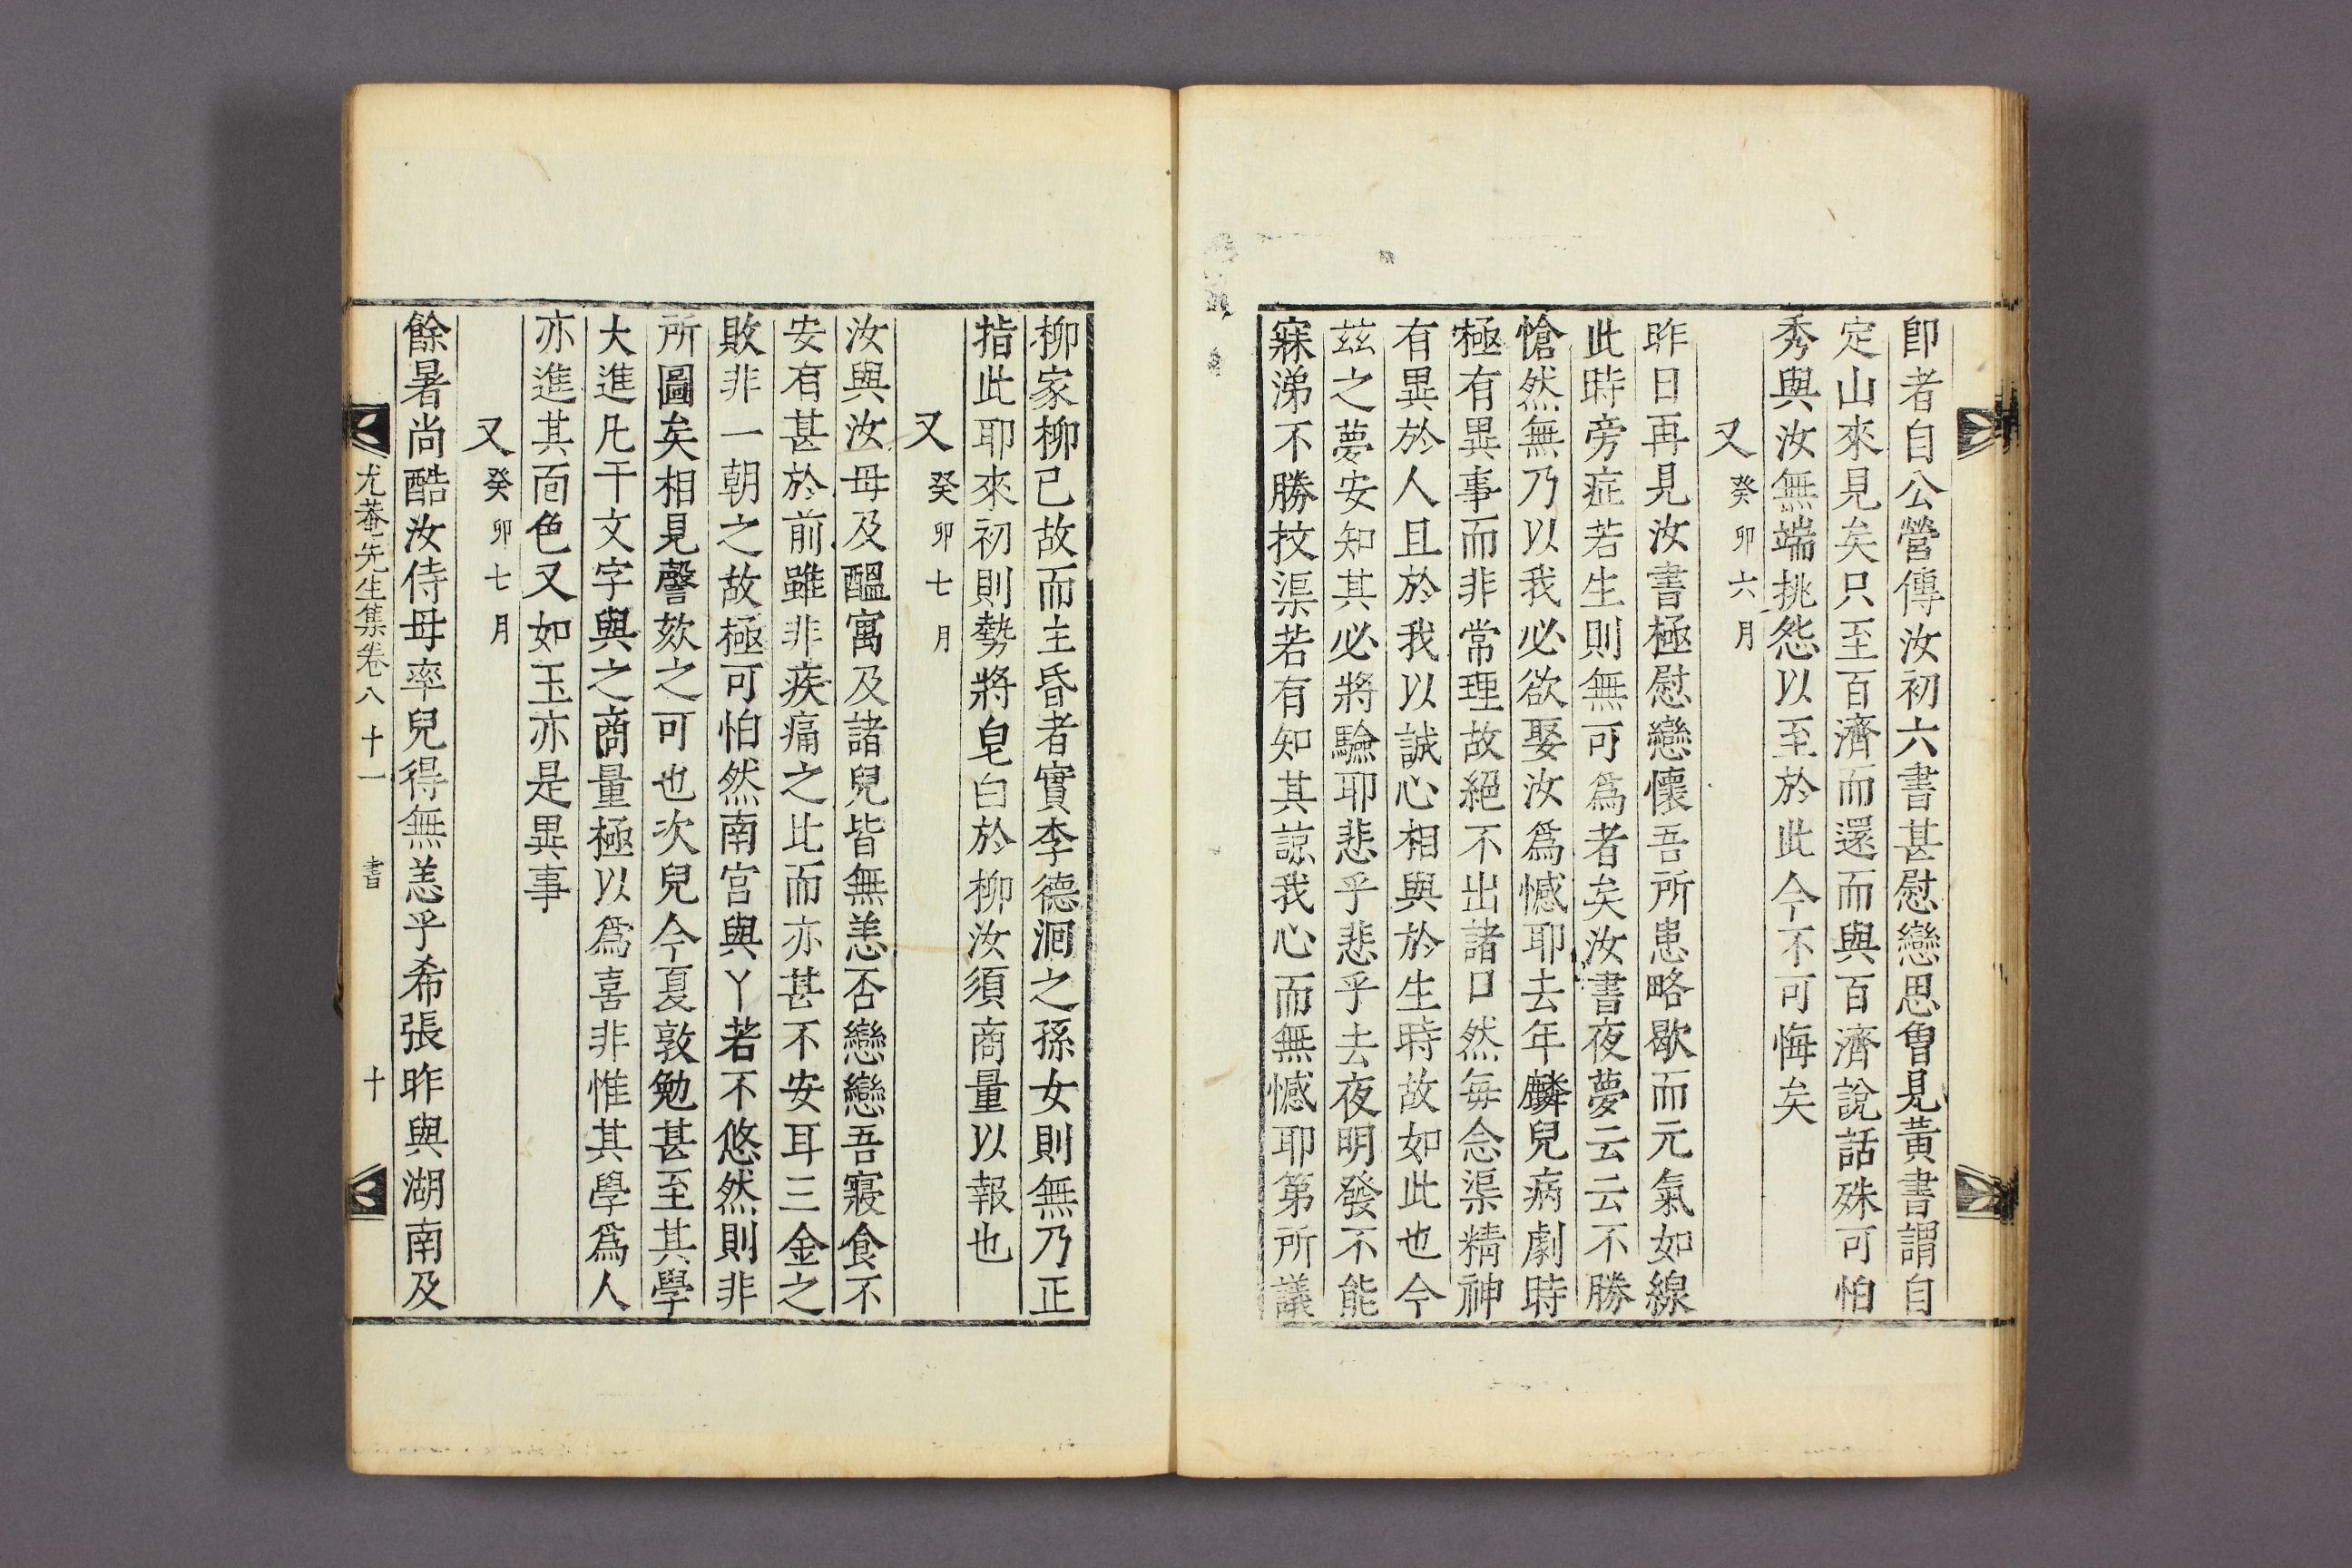 卽者自公營傳汝初六書甚慰戀思曾見黃書謂自
定山來見矣只至百濟而還而與百濟說話殊可怕
秀與汝無端挑怨以至於此今不可悔矣
又 癸卯六月
昨日再見汝書極慰戀懷吾所患略歇而元氣如線
此時旁症若生則無可爲者矣汝書夜夢云云不勝
愴然無乃以我必欲娶汝爲憾耶去年麟兒病劇時
極有異事而非常理故絕不出諸口然每念渠精神
有異於人且於我以誠心相與於生時故如此也今
茲之夢安知其必將驗耶悲乎悲乎去夜明發不能
寐涕不勝抆渠若有知其諒我心而無憾耶第所議
柳家柳已故而主昏者實李德泂之孫女則無乃正
指此耶來初則勢將皂白於柳汝須商量以報也
又 癸卯七月
汝與汝母及醞寓及諸兒皆無恙否戀戀吾寢食不
安有甚於前雖非疾痛之比而亦甚不安耳三金之
敗非一朝之故極可怕然南宮與丫若不悠然則非
所圖矣相見謦欬之可也次兒今夏敦勉甚至其學
大進凡干文字與之商量極以爲喜非惟其學爲人
亦進其面色又如玉亦是異事
又 癸卯七月
餘暑尚酷汝侍母率兒得無恙乎希張昨與湖南及
尤菴先生集卷八 十一 書 十